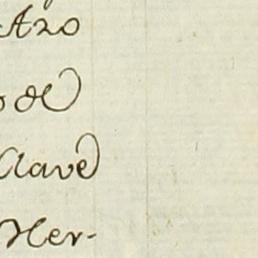 Azo
de
Clave
Her-